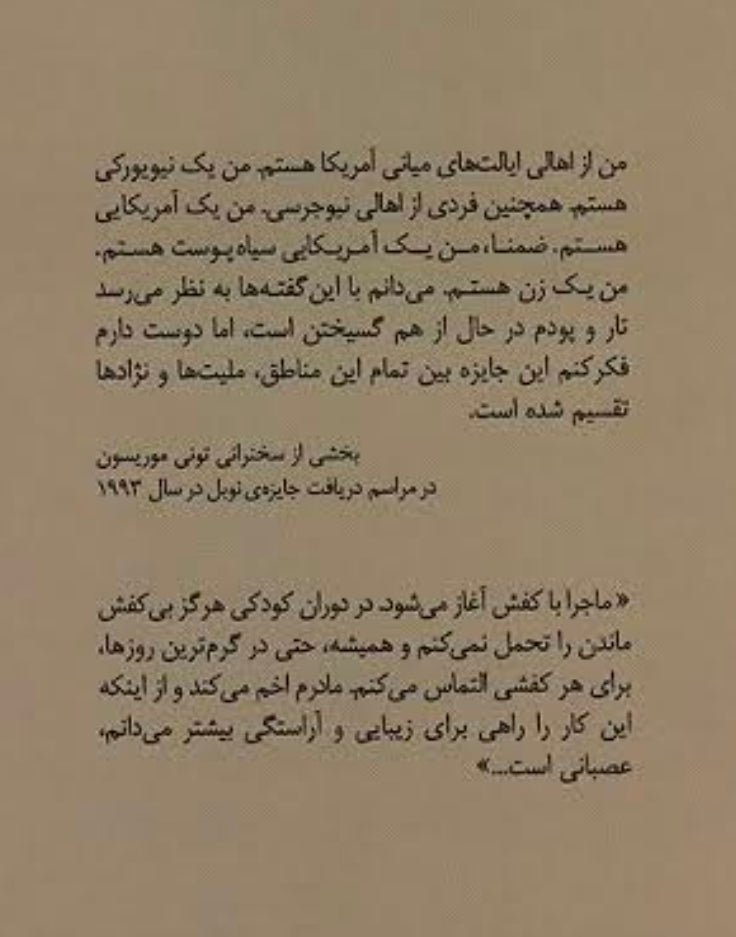 من از اهالی ایالت‌های میانی آمریکا هستم. من یک نیویورکی
هستم. همچنین فردی از اهالی نیوجرسی. من یک آمریکایی
هستم. ضمنا، من یک آمریکایی سیاه‌پوست هستم.
من یک زن هستم. می‌دانم با این گفته‌ها به نظر می‌رسد
تار و پودم در حال از هم گسیختن است، اما دوست دارم
فکر کنم این جایزه بین تمام این مناطق، ملیت‌ها و نژادها
تقسیم شده است.
بخشی از سخنرانی تونی موریسون
در مراسم دریافت جایزه‌ی نوبل در سال ۱۹۹۳
«ماجرا با کفش آغاز می‌شود. در دوران کودکی هرگز بی‌کفش
ماندن را تحمل نمی‌کنم و همیشه، حتی در گرم‌ترین روزها،
برای هر کفشی التماس می‌کنم. مادرم اخم می‌کند و از اینکه
این کار را راهی برای زیبایی و آراستگی بیشتر می‌دانم،
عصبانی است...»